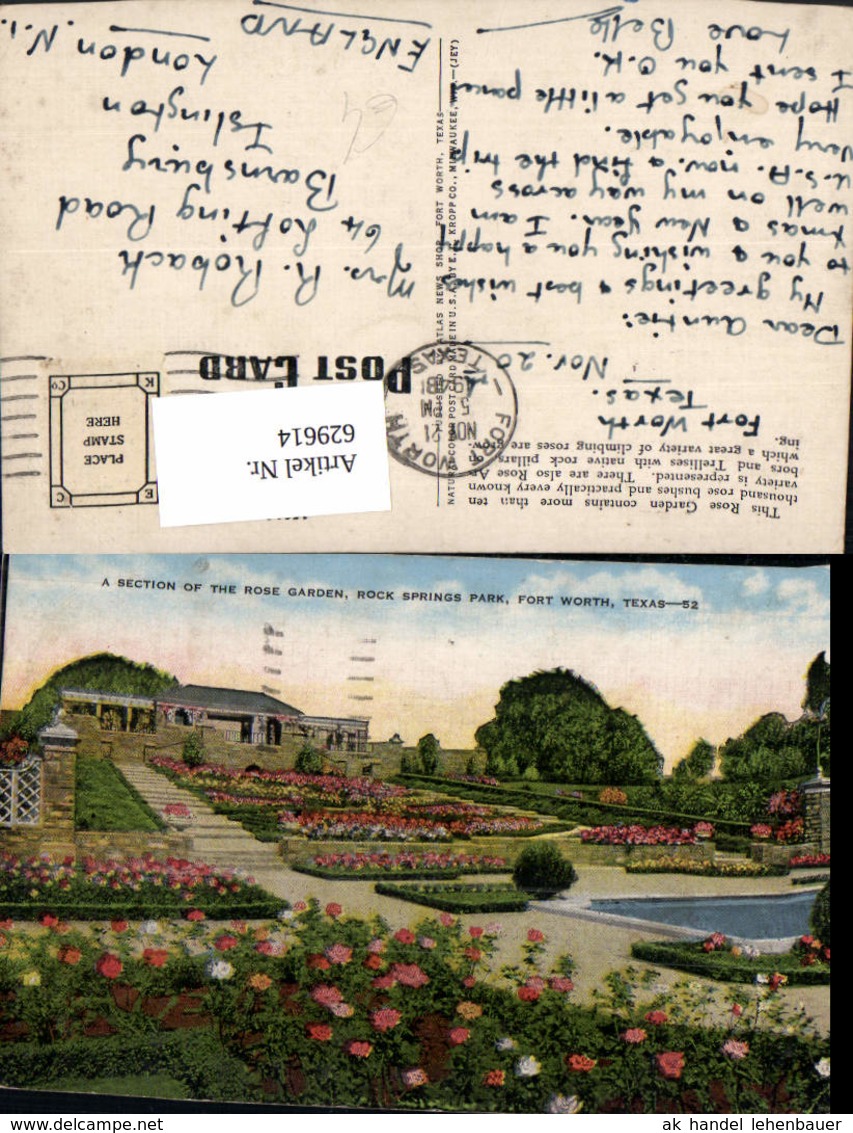 This Rose Garden contains more than ten
thousand rose bushes and practically every known
variety is represented. There are also Rose Ar-
bors and Trellises with native rock pillars on
which a great variety of climbing roses are grow-
ing.
Fort Worth
Texas.
Nov. 20
Dear Auntie:
My greetings & best wishes
to you & wishing you a happy
Xmas & New Year. I am
well on my way across
U.S.A. now. & find the trip
very enjoyable.
Hope you get a little parcel
I sent you O.K.
Love Belle
PUBLISHED BY ATLAS NEWS SHOP, FORT WORTH, TEXAS
NATURAL COLOR POST CARD MADE IN U.S.A. BY E. C. KROPP CO., MILWAUKEE, WIS.—(JEY)
FORT WORTH
NOV 21
5 PM
TEXAS
Artikel Nr.
629614
POST CARD
PLACE
STAMP
HERE
Mrs. R. Roback
64 Lofting Road
Barnsbury
Islington
London. N.1.
ENGLAND
A SECTION OF THE ROSE GARDEN, ROCK SPRINGS PARK, FORT WORTH, TEXAS—52
ak handel lehenbauer